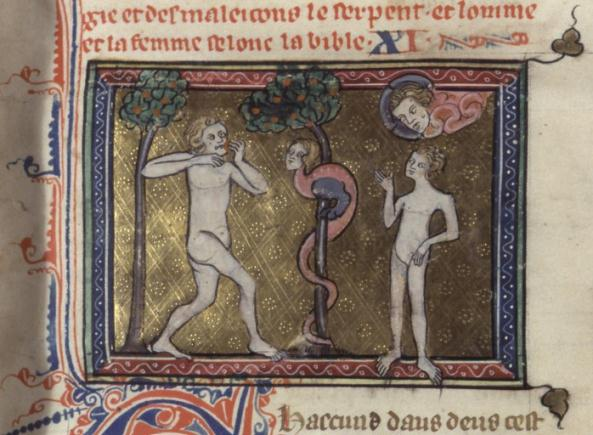 gie et des maleicons le serpent. et lomme
et la femme selonc la bible. XI.
Chascuns daus deus cest